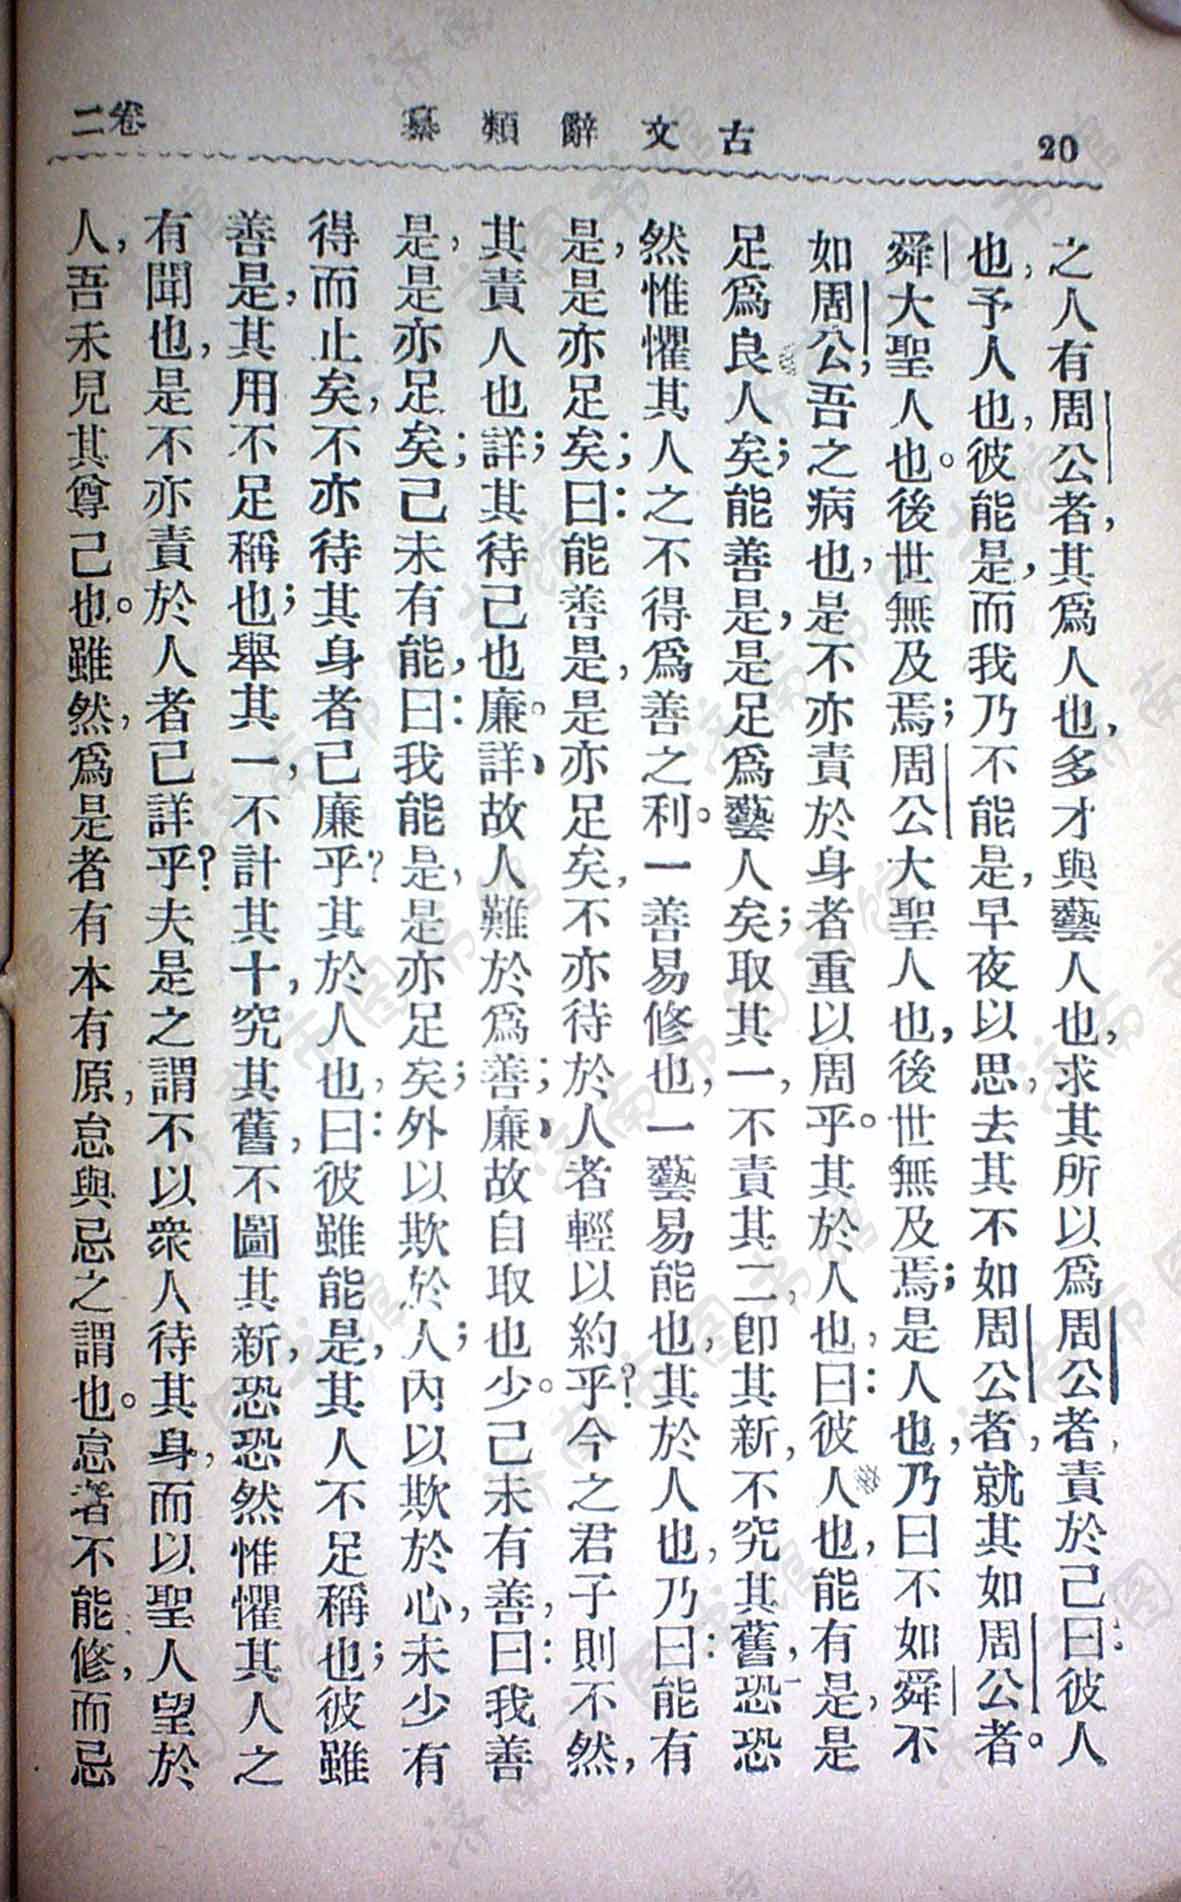 20
古文辭類纂
卷二
之人有周公者,其爲人也,多才與藝人也,求其所以爲周公者,責於己曰:彼人
也,予人也,彼能是,而我乃不能是,早夜以思,去其不如周公者,就其如周公者。
舜大聖人也。後世無及焉;周公大聖人也,後世無及焉;是人也,乃曰不如舜不
如周公,吾之病也,是不亦責於身者重以周乎。其於人也,曰:彼人也,能有是,是
足爲良人矣;能善是,是足爲藝人矣;取其一,不責其二,卽其新,不究其舊,恐恐
然惟懼其人之不得爲善之利。一善易修也,一藝易能也,其於人也,乃曰:能有
是,是亦足矣;曰:能善是,是亦足矣,不亦待於人者輕以約乎?今之君子則不然,
其責人也詳;其待己也廉。詳,故人難於爲善;廉,故自取也少。己未有善,曰:我善
是,是亦足矣;己未有能,曰:我能是,是亦足矣;外以欺於人;內以欺於心,未少有
得而止矣,不亦待其身者已廉乎?其於人也,曰:彼雖能是,其人不足稱也;彼雖
善是,其用不足稱也;舉其一,不計其十,究其舊,不圖其新,恐恐然惟懼其人之
有聞也,是不亦責於人者已詳乎?夫是之謂不以衆人待其身,而以聖人望於
人,吾未見其尊己也。雖然,爲是者有本有原,怠與忌之謂也。怠者不能修,而忌